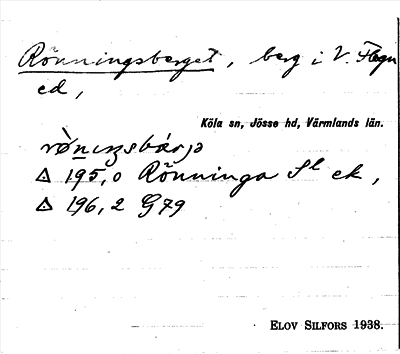 Rönningsberget, berg i V. Flogn
ed,
Köla sn, Jösse hd, Värmlands län.
△ 195,0 Rönninga Sl ek,
△ 196,2 G79
ELOV SILFORS 1938.